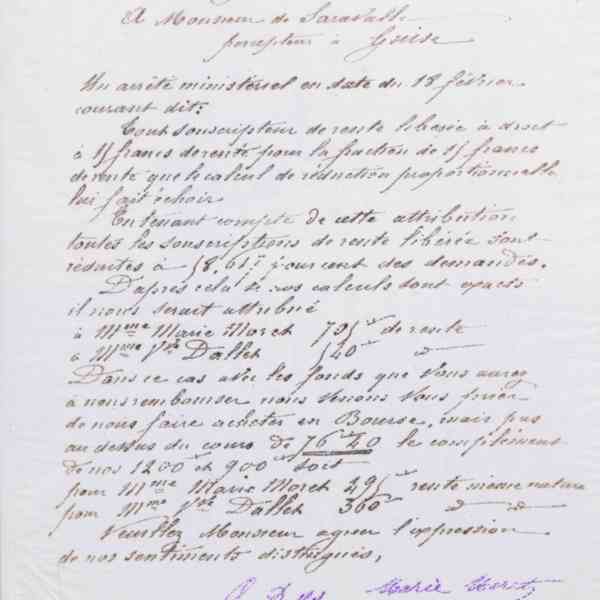 A Monsieur de
percepteur à Guise
Un arrêté ministériel en date du 18 février
courant dit:
Tout souscripteur de rente libérée à droit
à 5 francs de rente pour la fraction de 5 francs
de rente que le calcul de réduction proportionnelle
lui fait échoir
En tenant compte de cette attribution
toutes les souscriptions de rente libérée sont
réduites à 58,657 pour cent des demandes.
D'après cela si nos calculs sont exacts
il nous serait attribué
à Mme Marie Moret 705 de rente
à Mme Vve Dallet 540 "
Dans ce cas avec les fonds que vous aurez
à nous rembourser nous venons vous prier
de nous faire acheter en Bourse, mais pas
au dessus du cours de 76 40 le complément
de nos 1200 et 900 soit
pour Mme Marie Moret 495 rente même nature
pour Mme Vve Dallet 360 " "
Veuillez Monsieur agréer l'expression
de nos sentiments distingués,
Marie Moret